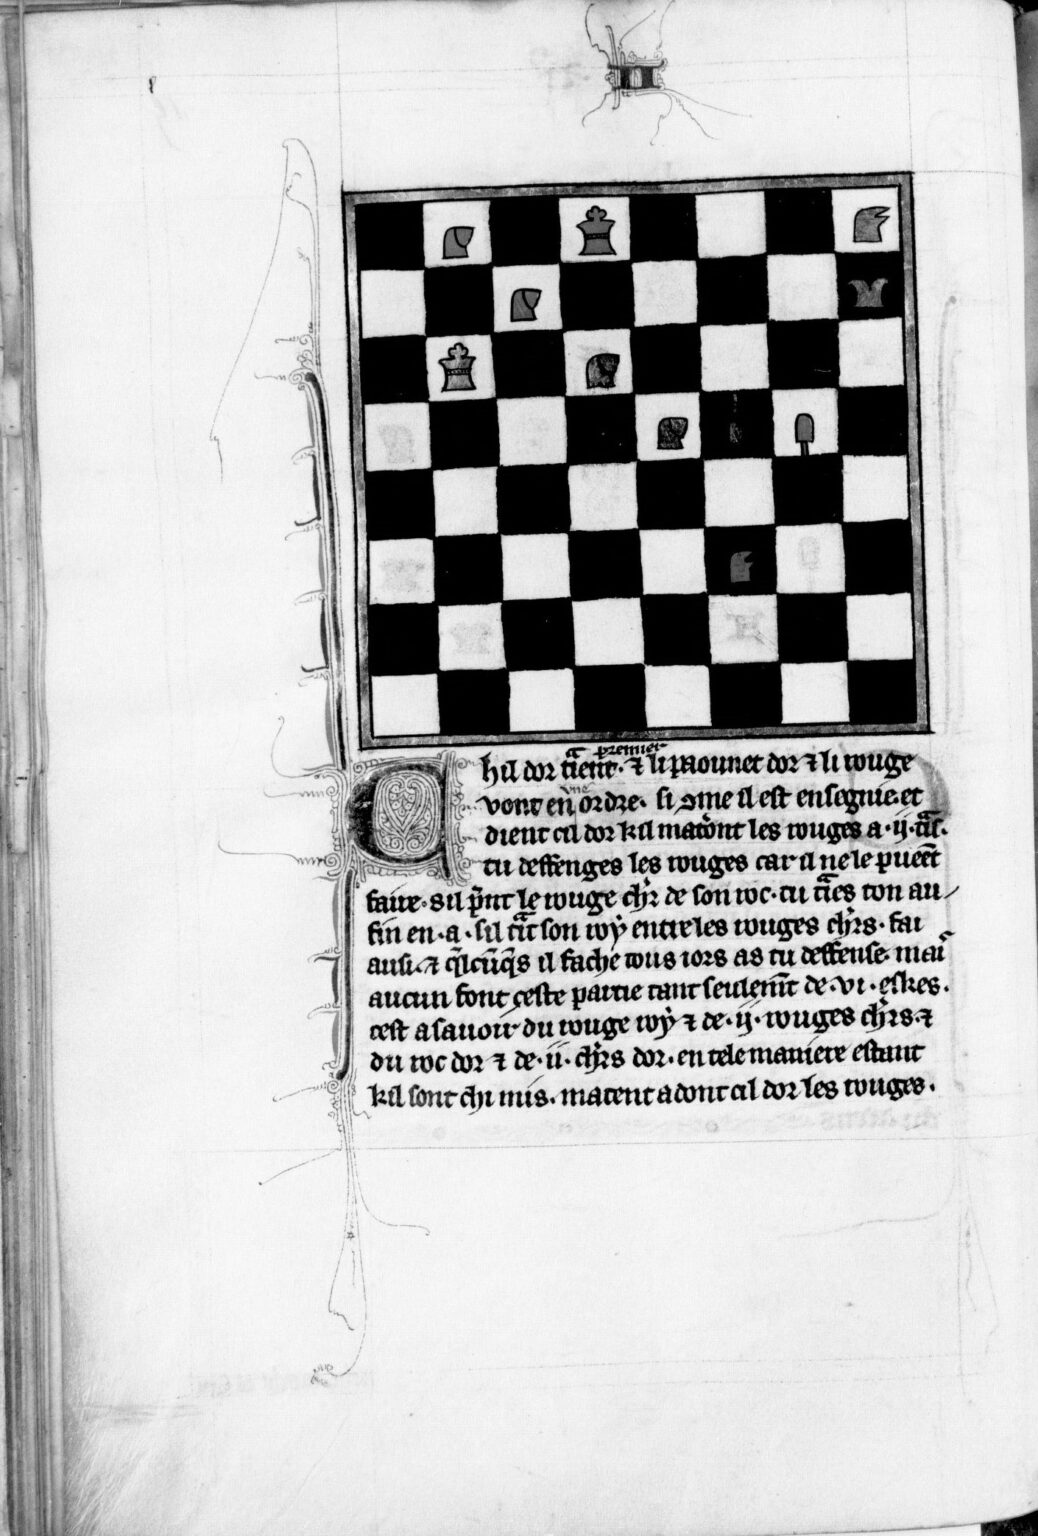 p̄remier
Chil dor traient. ⁊ li paounet dor ⁊ li rouge
vne
vont en ordre. si 9me il est ensegnie. et
dient cil dor kil materont les rouges a .ij. tͣis.
tu deffenges les rouges car il nele pueent
faire. sil p̄nt le rouge chr̄ de son roc. tu tͣies ton au/
fin en .a. sil tͣit son roy entre les rouges chr̄s. fai
ausi. ⁊ q̄lcūq̄s il fache tous iors as tu deffense. mais
aucun font ceste partie tant seulem̄t de .vi. eskes.
cest asauoir du rouge roy ⁊ de .ij. rouges chr̄s. ⁊
du roc dor ⁊ de .ii. chr̄s dor. en tele maniere estant
kil sont chi mis. matent adont cil dor les rouges.